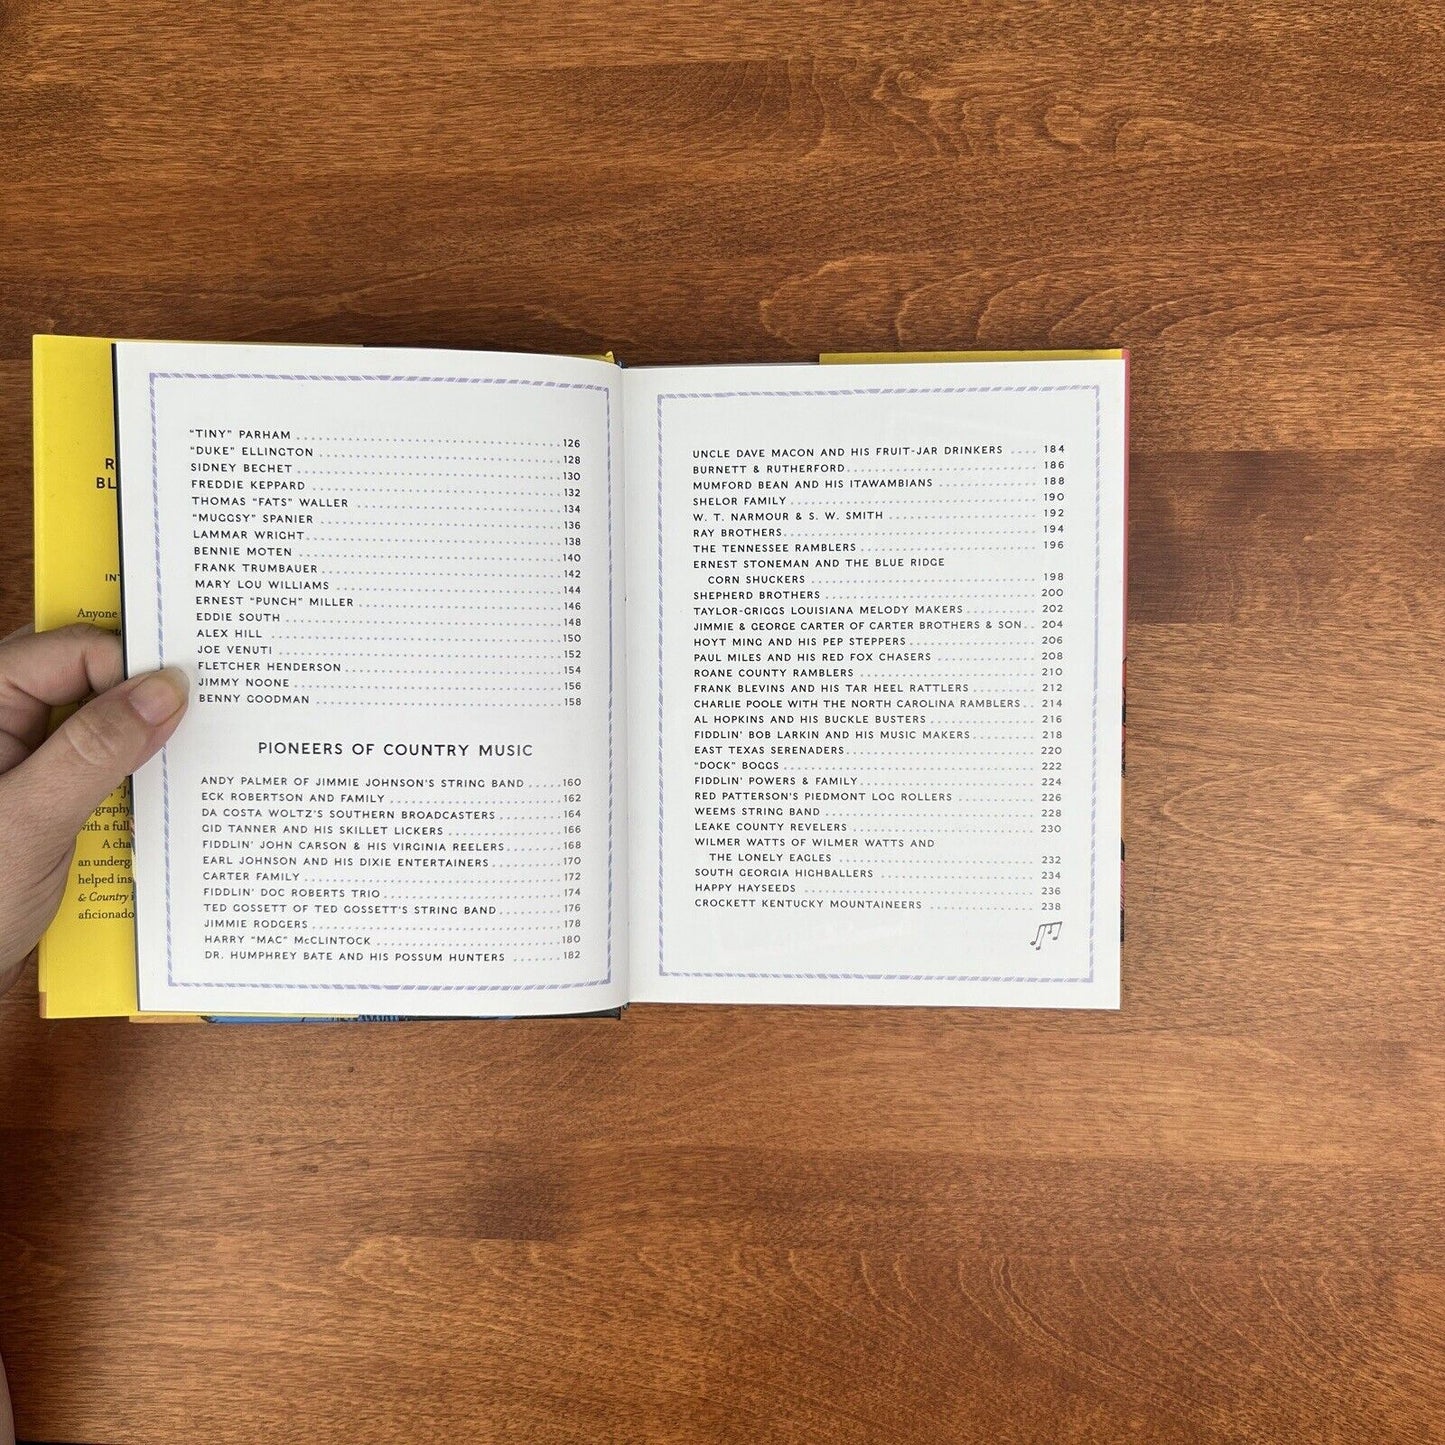 R
BL
INT
Anyone
ography,
with a full
A cha
an underg
helped ins
& Country i
aficionado
“TINY” PARHAM 126
“DUKE” ELLINGTON 128
SIDNEY BECHET 130
FREDDIE KEPPARD 132
THOMAS “FATS” WALLER 134
“MUGGSY” SPANIER 136
LAMMAR WRIGHT 138
BENNIE MOTEN 140
FRANK TRUMBAUER 142
MARY LOU WILLIAMS 144
ERNEST “PUNCH” MILLER 146
EDDIE SOUTH 148
ALEX HILL 150
JOE VENUTI 152
FLETCHER HENDERSON 154
JIMMY NOONE 156
BENNY GOODMAN 158
PIONEERS OF COUNTRY MUSIC
ANDY PALMER OF JIMMIE JOHNSON’S STRING BAND 160
ECK ROBERTSON AND FAMILY 162
DA COSTA WOLTZ’S SOUTHERN BROADCASTERS 164
GID TANNER AND HIS SKILLET LICKERS 166
FIDDLIN’ JOHN CARSON & HIS VIRGINIA REELERS 168
EARL JOHNSON AND HIS DIXIE ENTERTAINERS 170
CARTER FAMILY 172
FIDDLIN’ DOC ROBERTS TRIO 174
TED GOSSETT OF TED GOSSETT’S STRING BAND 176
JIMMIE RODGERS 178
HARRY “MAC” McCLINTOCK 180
DR. HUMPHREY BATE AND HIS POSSUM HUNTERS 182
UNCLE DAVE MACON AND HIS FRUIT-JAR DRINKERS 184
BURNETT & RUTHERFORD 186
MUMFORD BEAN AND HIS ITAWAMBIANS 188
SHELOR FAMILY 190
W. T. NARMOUR & S. W. SMITH 192
RAY BROTHERS 194
THE TENNESSEE RAMBLERS 196
ERNEST STONEMAN AND THE BLUE RIDGE
CORN SHUCKERS 198
SHEPHERD BROTHERS 200
TAYLOR-GRIGGS LOUISIANA MELODY MAKERS 202
JIMMIE & GEORGE CARTER OF CARTER BROTHERS & SON 204
HOYT MING AND HIS PEP STEPPERS 206
PAUL MILES AND HIS RED FOX CHASERS 208
ROANE COUNTY RAMBLERS 210
FRANK BLEVINS AND HIS TAR HEEL RATTLERS 212
CHARLIE POOLE WITH THE NORTH CAROLINA RAMBLERS 214
AL HOPKINS AND HIS BUCKLE BUSTERS 216
FIDDLIN’ BOB LARKIN AND HIS MUSIC MAKERS 218
EAST TEXAS SERENADERS 220
“DOCK” BOGGS 222
FIDDLIN’ POWERS & FAMILY 224
RED PATTERSON’S PIEDMONT LOG ROLLERS 226
WEEMS STRING BAND 228
LEAKE COUNTY REVELERS 230
WILMER WATTS OF WILMER WATTS AND
THE LONELY EAGLES 232
SOUTH GEORGIA HIGHBALLERS 234
HAPPY HAYSEEDS 236
CROCKETT KENTUCKY MOUNTAINEERS 238